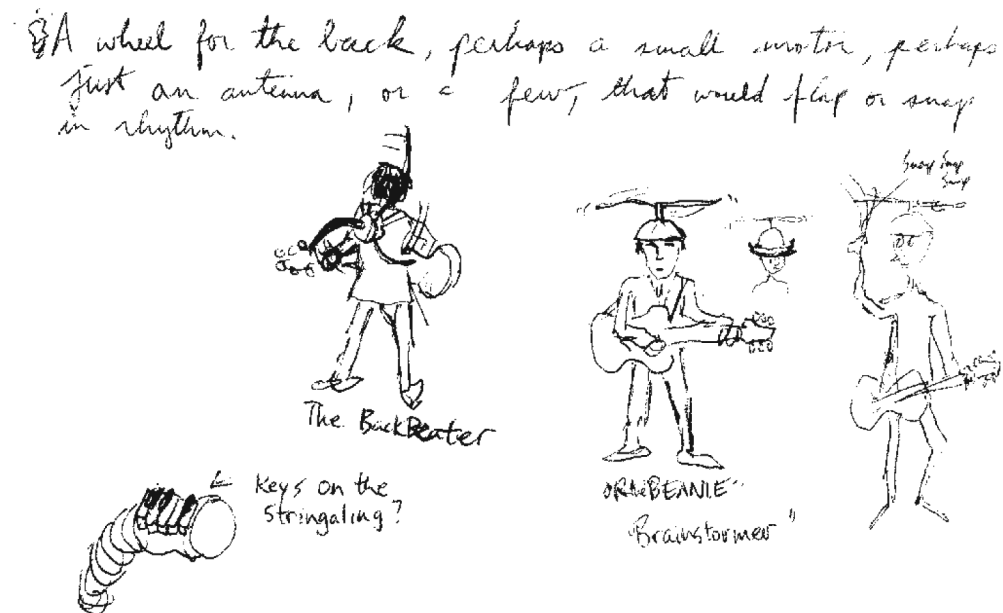 A wheel for the back, perhaps a small motor, perhaps
just an antenna, or a few, that would flap or snap
in rhythm.
Snap Snap
Snap
The BackBeater
Keys on the
Stringaling?
BEANIE"
"Brainstormer"